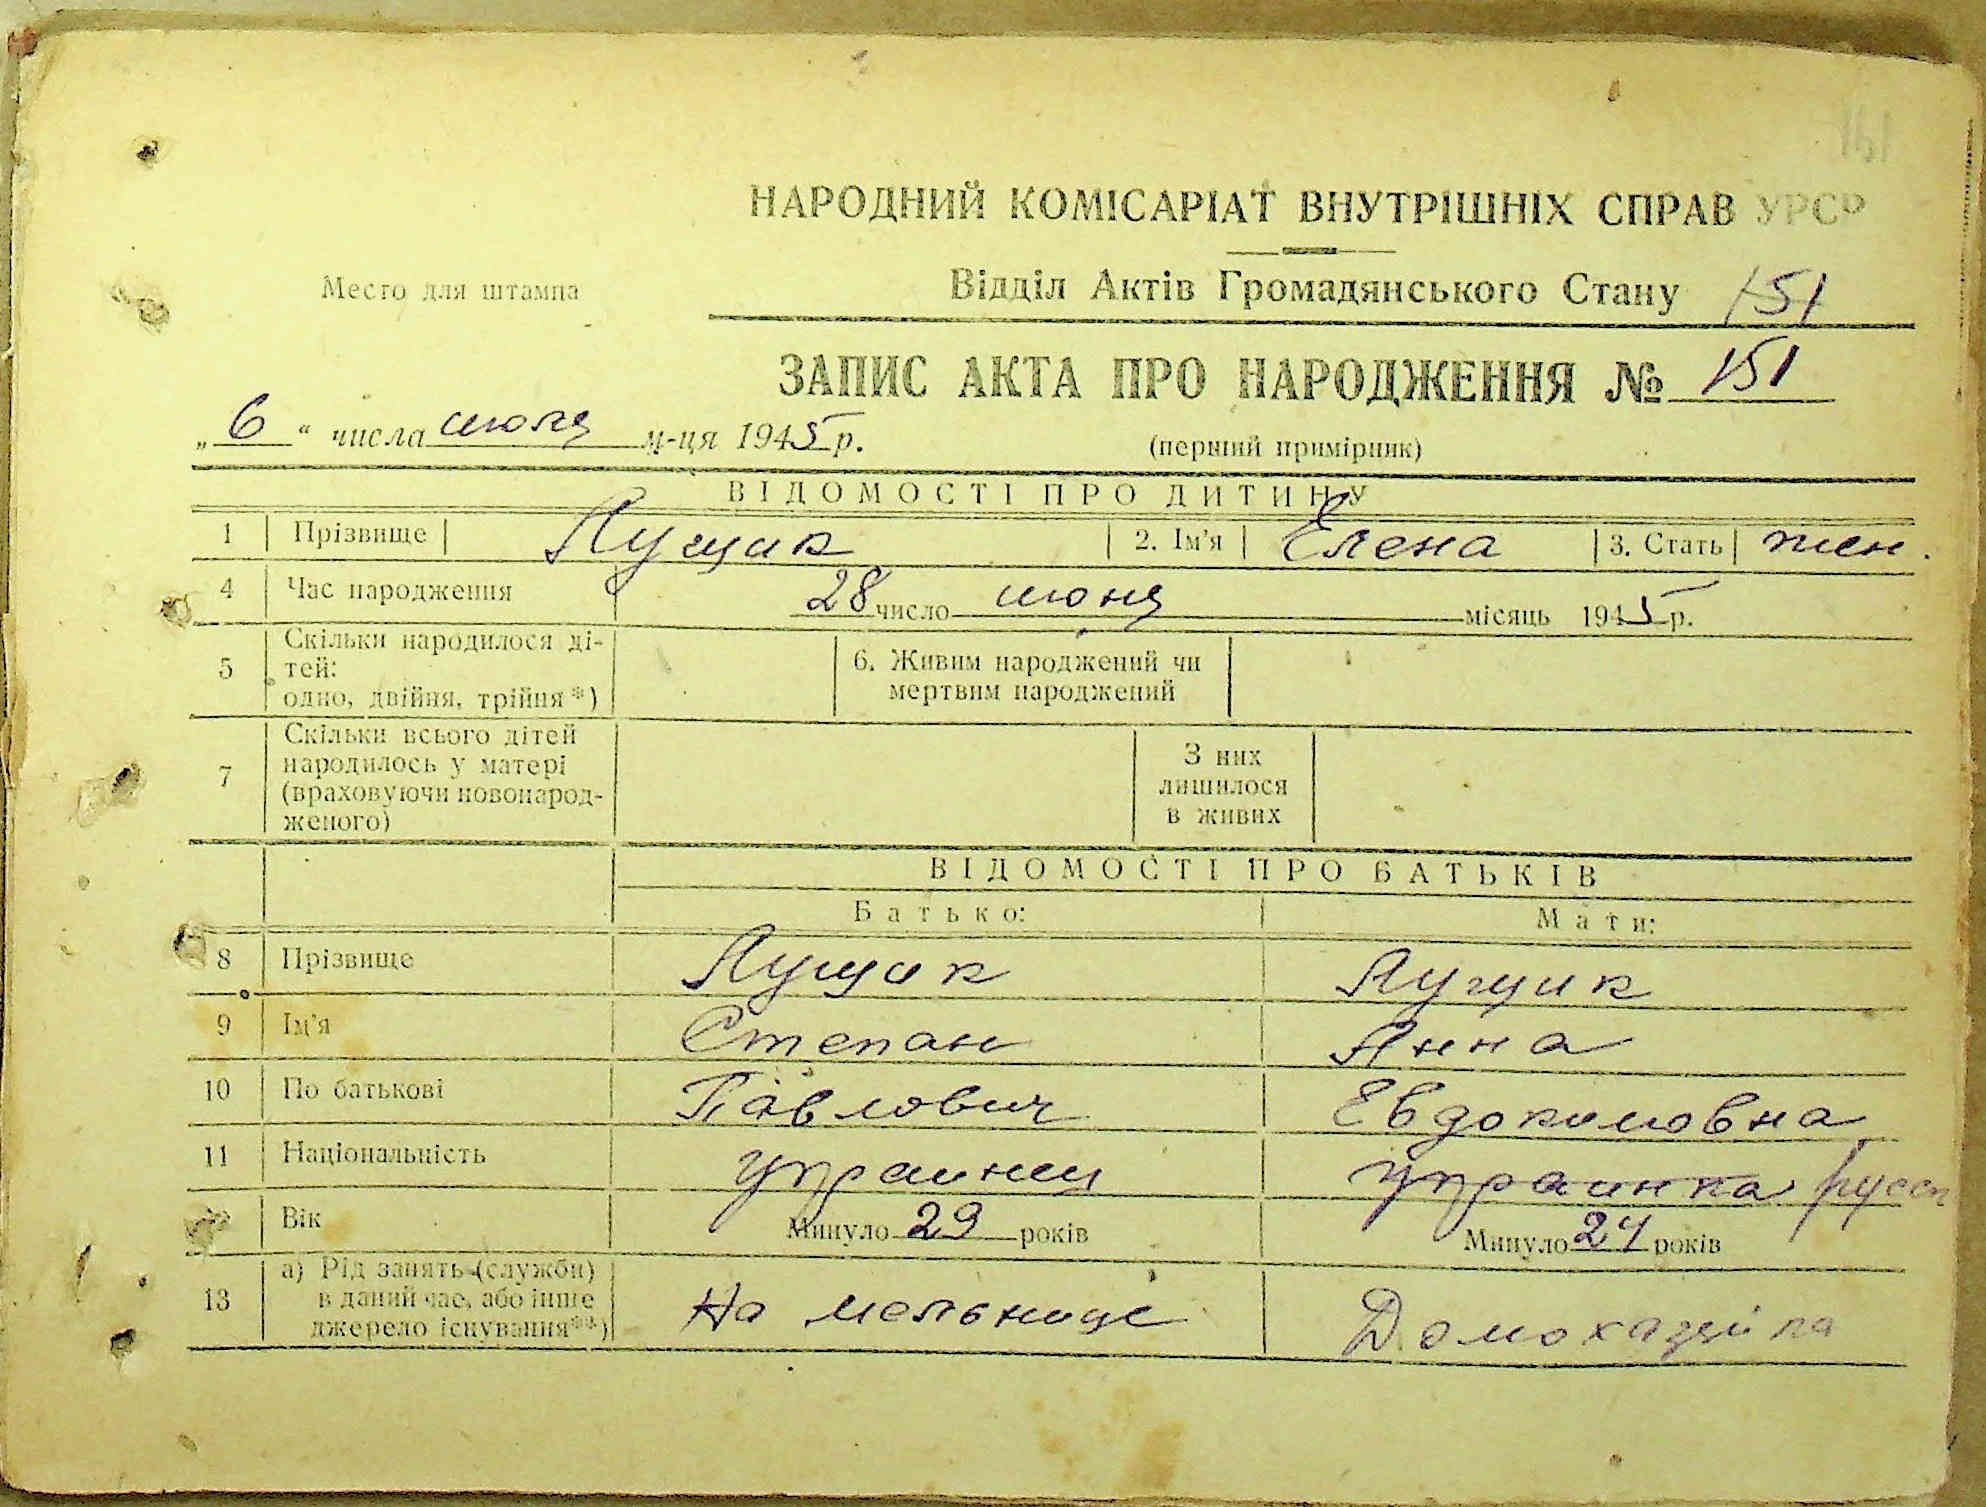 161
НАРОДНИЙ КОМІСАРІАТ ВНУТРІШНІХ СПРАВ УРСР
Место для штампа
Відділ Актів Громадянського Стану 151
ЗАПИС АКТА ПРО НАРОДЖЕННЯ № 151
„6“ числа июля м-ця 1945 р.
(перший примірник)
ВІДОМОСТІ ПРО ДИТИНУ
1 Прізвище Лущик 2. Ім'я Елена 3. Стать жен.
4 Час народження 28 число июня місяць 1945 р.
5 Скільки народилося ді-
тей:
одно, двійня, трійня*)
6. Живим народжений чи
мертвим народжений
7 Скільки всього дітей
народилось у матері
(враховуючи новонарод-
женого)
З них
лишилося
в живих
ВІДОМОСТІ ПРО БАТЬКІВ
Батько: Мати:
8 Прізвище Лущик Лущик
9 Ім'я Степан Анна
10 По батькові Павлович Евдокимовна
11 Національність украинец украинка русск
Вік Минуло 29 років Минуло 24 років
13 а) Рід занять (служби)
в даний час, або інше
джерело існування**)
На мельнице Домохазяйка